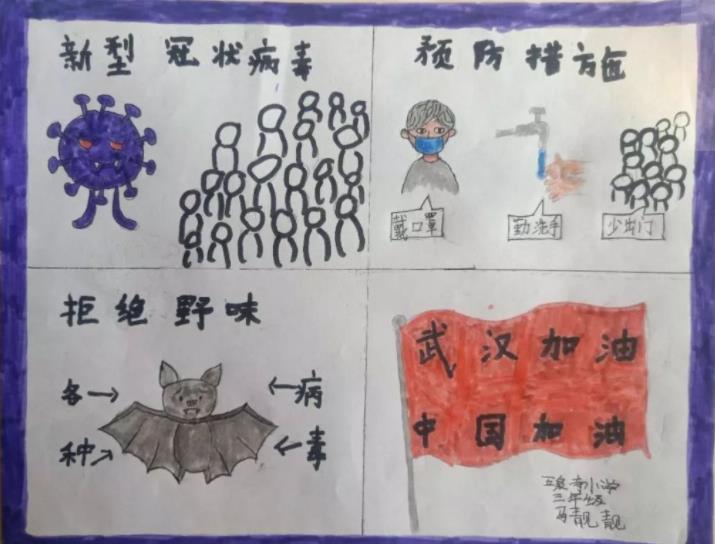 新型冠状病毒
预防措施
戴口罩
勤洗手
少出门
拒绝野味
各
病
种
毒
武汉加油
中国加油
小学
三年级
马靓靓